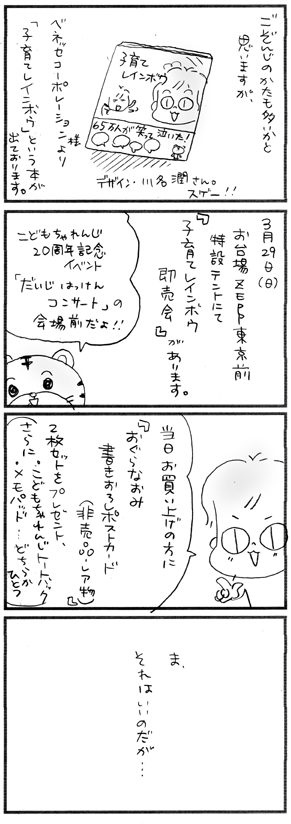 ごぞんじのかたも多いかと
思いますが、
子育て
レインボウ
65万人が笑って泣いた!
ベネッセコーポレーション様より
「子育てレインボウ」という本が
出ております。
デザイン・川名潤さん。
スゲー!!
3月29日(日)
お台場ZEPP東京前
特設テントにて
『子育てレインボウ
即売会』があります。
こどもちゃれんじ
20周年記念
イベント
「だいじはっけん
コンサート」の
会場前だよ!!
当日お買い上げの方に
『おぐらなおみ
書きおろしポストカード
(非売品・レア物)』
2枚セットをプレゼント、
さらに・こどもちゃれんじトートバッグ
・メモパッド…どちらか
ひとつ
ま、
それはいいのだが…